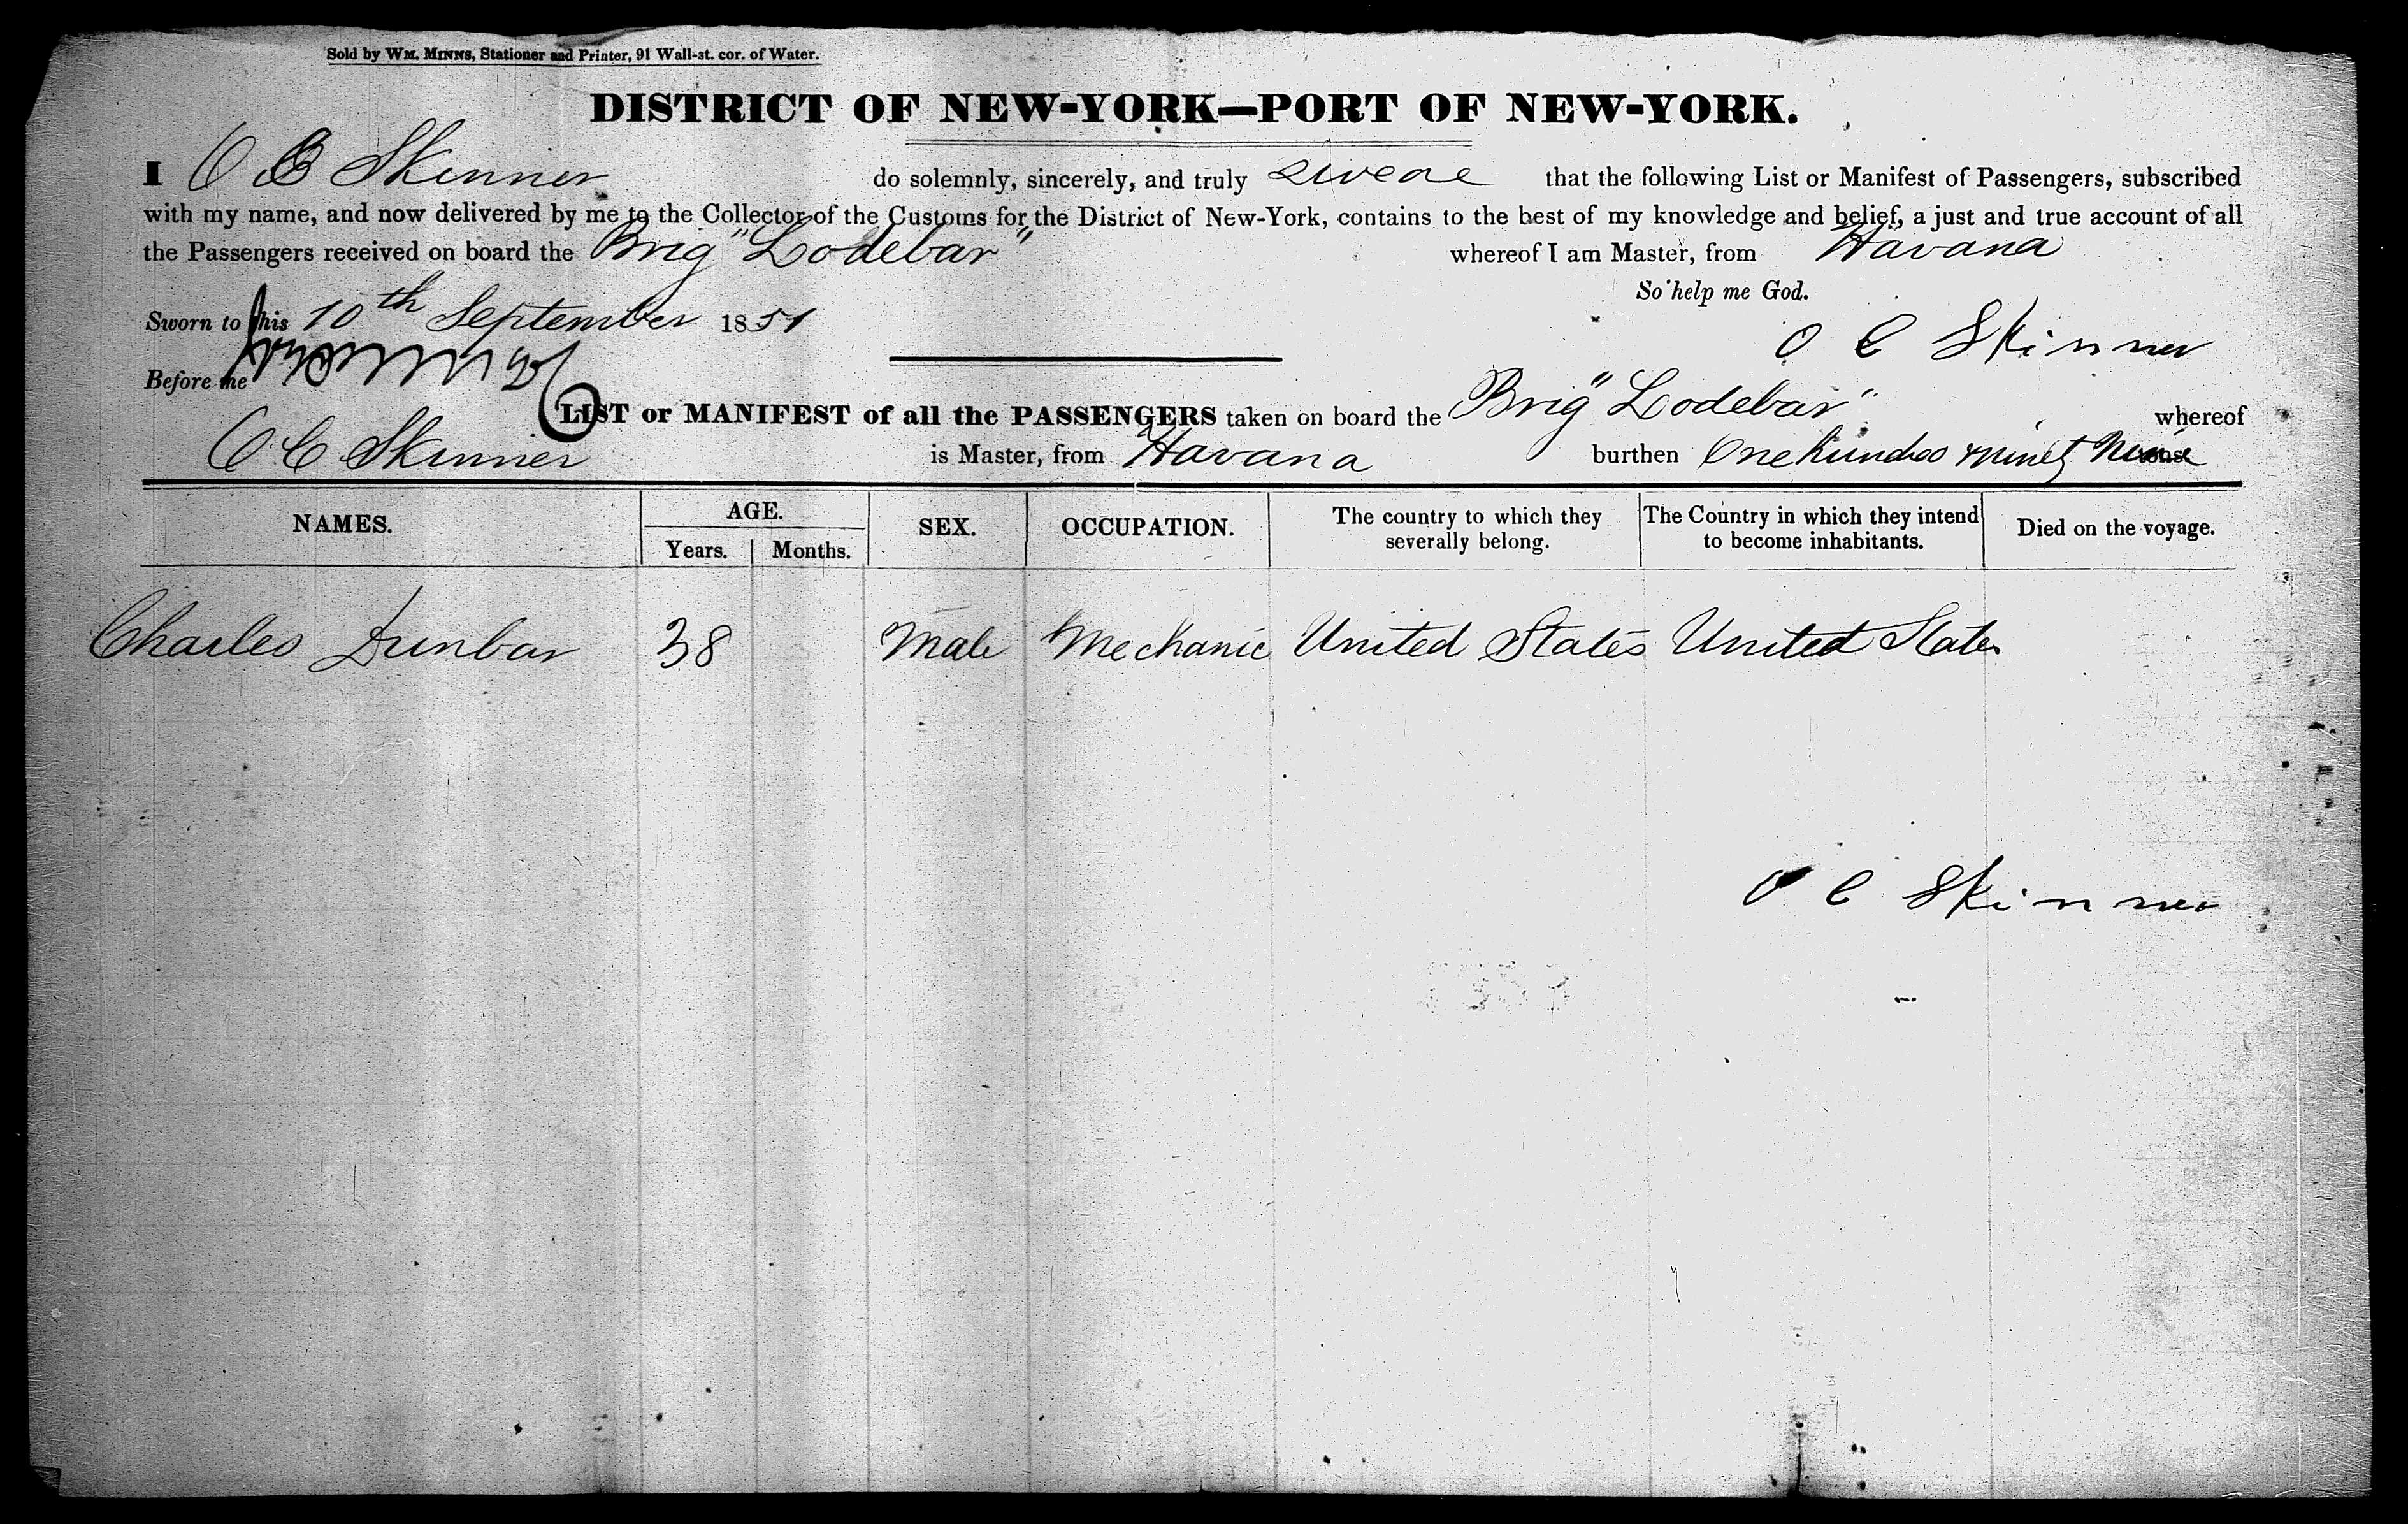 Sold by WM. MINNS, Stationer and Printer, 91 Wall-st. cor. of Water.
DISTRICT OF NEW-YORK—PORT OF NEW-YORK.
I O C Skinner do solemnly, sincerely, and truly swear that the following List or Manifest of Passengers, subscribed
with my name, and now delivered by me to the Collector of the Customs for the District of New-York, contains to the best of my knowledge and belief, a just and true account of all
the Passengers received on board the Brig "Lodebar" whereof I am Master, from Havana
So help me God.
Sworn to this 10th September 1851
O C Skinner
Before me
LIST or MANIFEST of all the PASSENGERS taken on board the Brig "Lodebar" whereof
O. C Skinner is Master, from Havana burthen One hundred & ninety Nine tons.
NAMES. AGE. Years. Months. SEX. OCCUPATION. The country to which they severally belong. The Country in which they intend to become inhabitants. Died on the voyage.
Charles Dunbar 38 Male Mechanic United States United States
O C Skinner